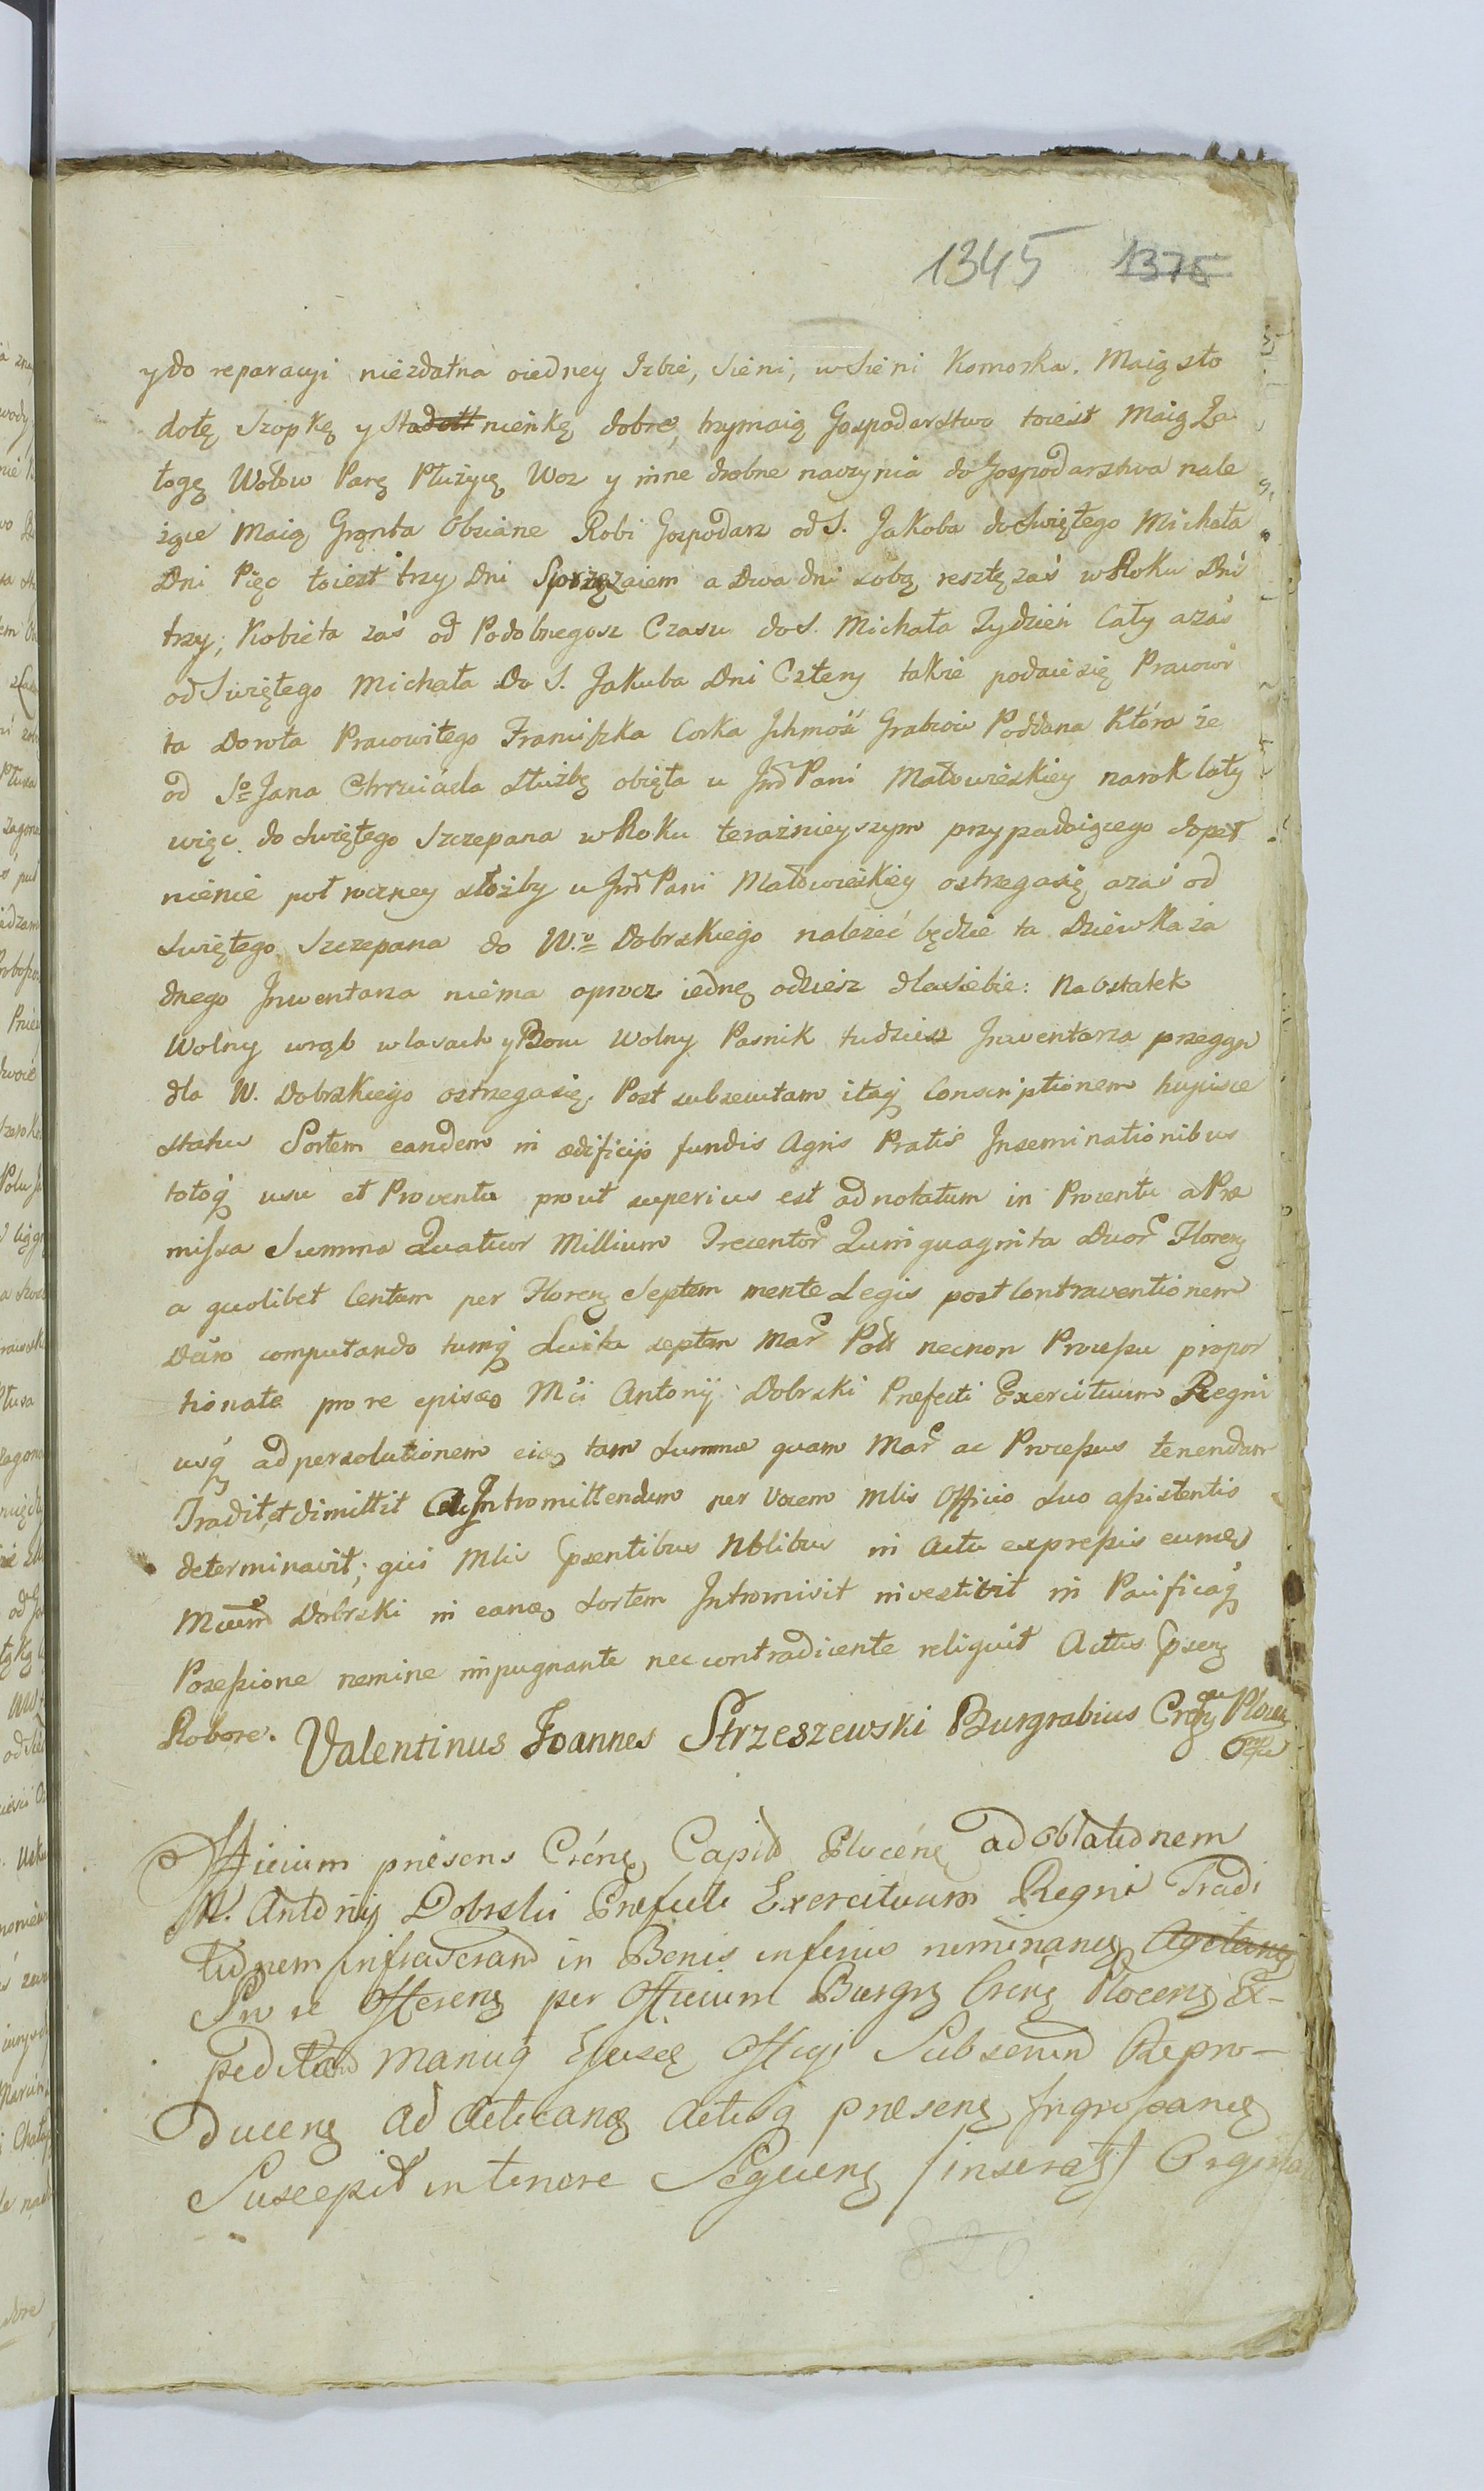 1345 1375
y do reparacyi niezdatna o iedney Izbie, Sieni, w Sieni Komorka. Maią sto
dołę Szopkę y Sta nienkę dobre, trzymaią Gospodarstwo toiest Maią Za
łogę Wołow Parę Płużycę Woz y inne drobne naczynia do Gospodarstwa nale
żące Maią Grąnta Obsiane Robi Gospodarz od S. Jakoba do Swiętego Michała
Dni Pięc toiest trzy Dni Sprzęzaiem a Dwa dni sobą resztę zaś w Roku Dni
trzy; Kobieta zaś od Podobnegosz Czasu do S. Michała Tydzień Cały a zaś
od Swiętego Michała Do S. Jakuba Dni Cztery takie podaie się Pracowi
ta Dorota Pracowitego Franciszka Corka Ichmość Grabcow Poddana Która że
od So Jana Chrzciciela Służbę obięła u Jmć Pani Małowieskiey na rok cały
więc do Swiętego Szczepana w Roku teraznieyszym przypadaiącego dopeł
nienie poł roczney służby u Jmć Pani Małowieskiey ostrzega się a zaś od
Swiętego Szczepana do W.o Dobrskiego należeć będzie ta Dziewka ża
dnego Inwentarza niema oprocz iedną odziesz dla siebie: Na Ostatek
Wolny wrąb w lasach y Boru Wolny Pasnik tudziesz Inwentarza przegon
dla W. Dobrskiego ostrzega się. Post subsecutam itaq Conscriptionem hujusce
status Sortem eandem in ædificijs fundis Agris Pratis Inseminationibus
totoq usu et Proventu prout superius est adnotatum in Procentu a Præ
missa Summa Quatuor Millium Trecentor Quinquaginta Duor Floren
a quolibet Centum per Floren Septem mente Legis post Contraventionem
Dein computando tumq Lucita septem Mar Poll necnon Processu propor
tionate pro re ejusd Mci Antonij Dobrski Præfecti Exercituum Regni
usq ad persolutionem eiusd tam Summæ quam Mar ac Processus tenendam
Tradit, et dimittit Intromittendum per Vocem Mlis Officio Suo assistentis
determinavit; qui Mlis psentibus Nblibus in Actu expressis eumd
Mcum Dobrski in eand Sortem Intromisit investivit in Pacificaq
Possessione nemine impugnante nec contradicente reliquit Actus psen
Robore. Valentinus Joannes Strzeszewski Burgrabius Plocen
Officium præsens Capit Plocen ad Oblationem
M. Antonij Dobrski Præfecti Exercituum Regni Tradi
tionem infrascrand in Benis inferius nominand
Pro re Offeren per Officium Burgr Plocen Ex-
peditam Manuq Ejusd Officij Subscrand Repro-
ducen ad Acticand Actisq præsen Ingrossand
Suscepit in tenore Sequen
820